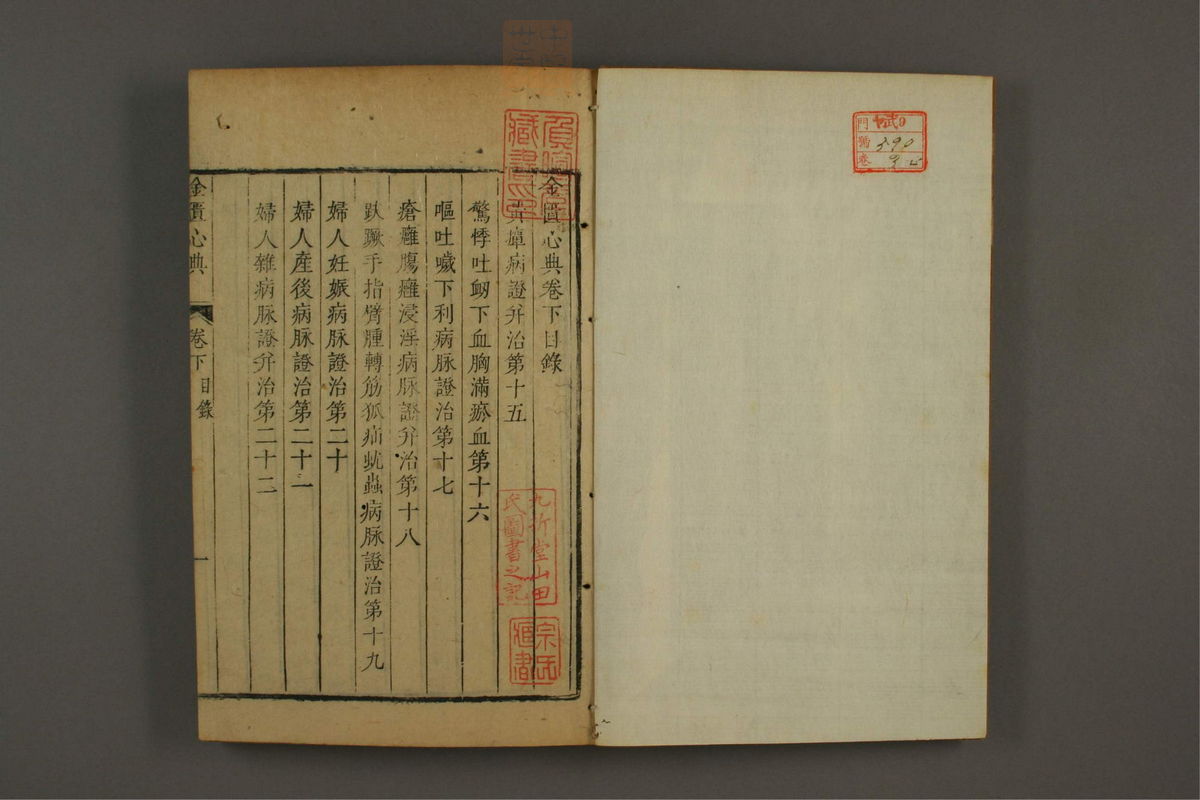 門
號 390
卷
金匱心典卷下目錄
黃疸病證并治第十五
驚悸吐衂下血胸滿瘀血第十六
嘔吐噦下利病脉證治第十七
瘡癰腸癰浸淫病脉證并治第十八
趺蹶手指臂腫轉筋狐疝蚘蟲病脉證治第十九
婦人妊娠病脉證治第二十
婦人產後病脉證治第二十一
婦人雜病脉證并治第二十二
金匱心典
卷下
目錄
一
藏書
九折堂山田
氏圖書之記
宗氏
藏書